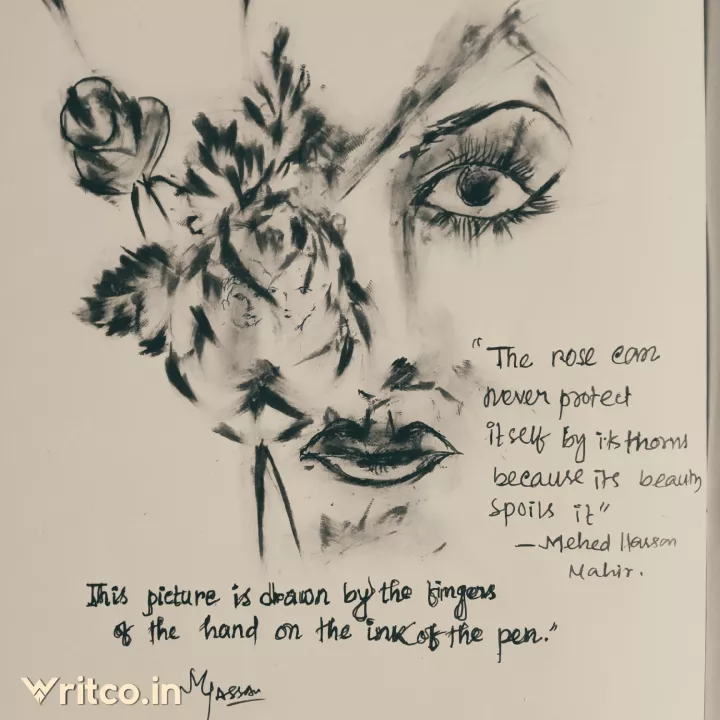 "The rose can
never protect
itself by its thorns
because its beauty
spoils it"
— Mehed Hasson
Mahir.
This picture is drawn by the fingers
of the hand on the ink of the pen."
Writco.in